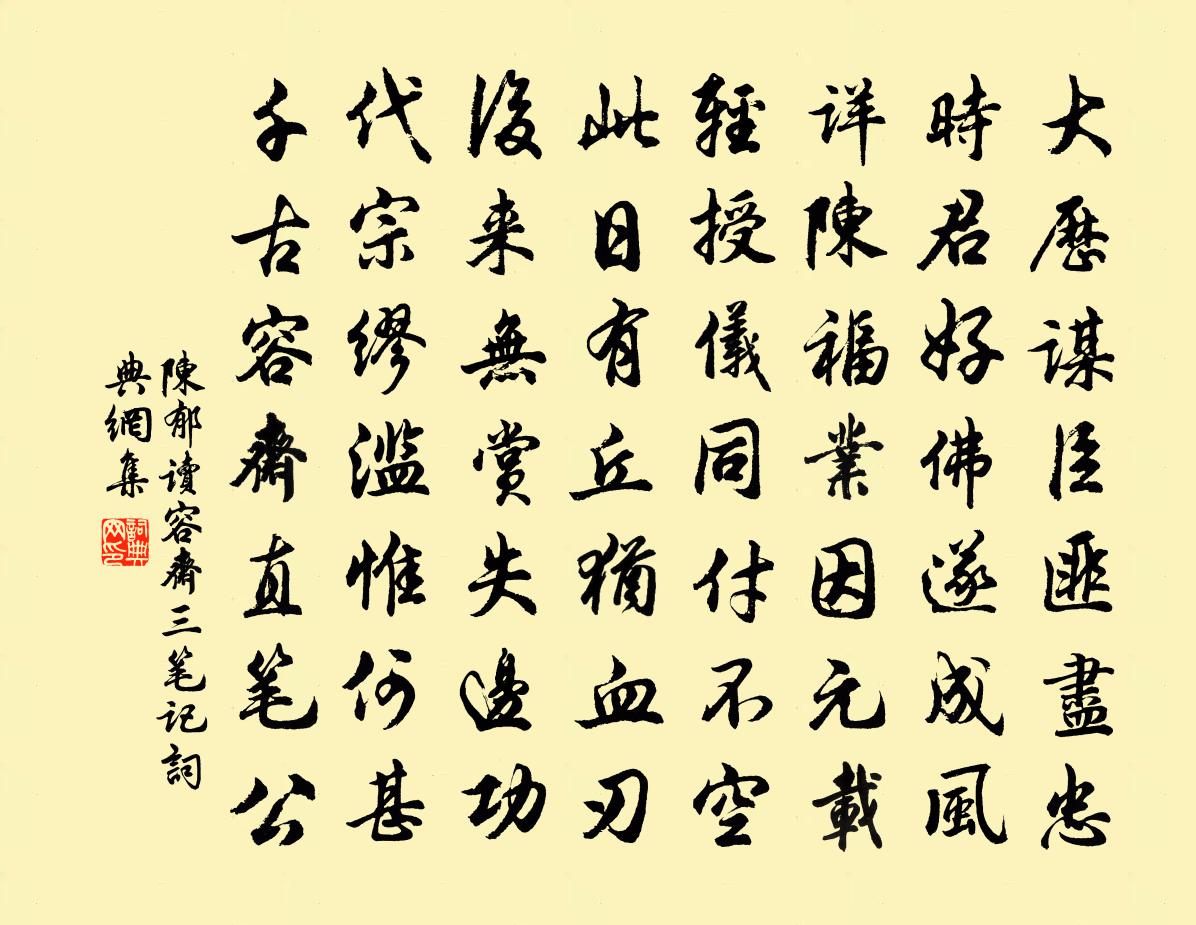 大歷謀臣匪盡忠
時君好佛遂成風
詳陳福業因元載
輕授儀同付不空
此日有丘猶血刃
後来無賞失邊功
代宗繆濫惟何甚
千古容齋直笔公
陳郁读容齋三笔记詞
典網集
詞典网印